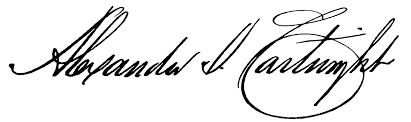 Alexander J. Cartwright